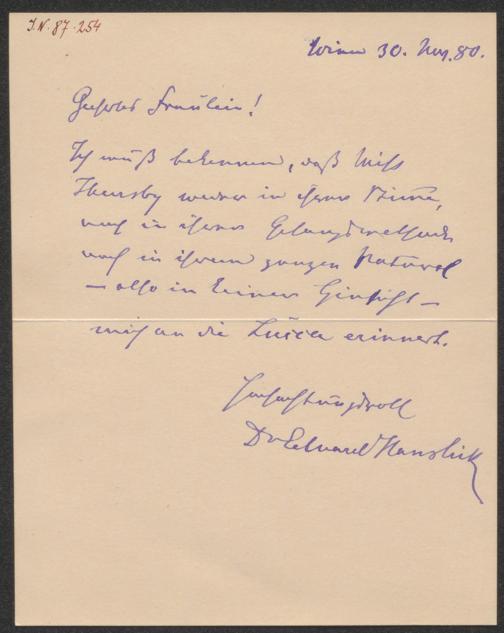 I.N. 87.254
Wien 30. Nov. 80.
Geehrtes Fräulein!
Ich muß bekennen, daß Miss
Thursby weder in ihrer Stimme,
noch in ihrer Gesangsmethode
noch in ihrem ganzen Naturell
– also in keiner Hinsicht –
mich an die Lucca erinnert.
Hochachtungsvoll
Dr Eduard Hanslick